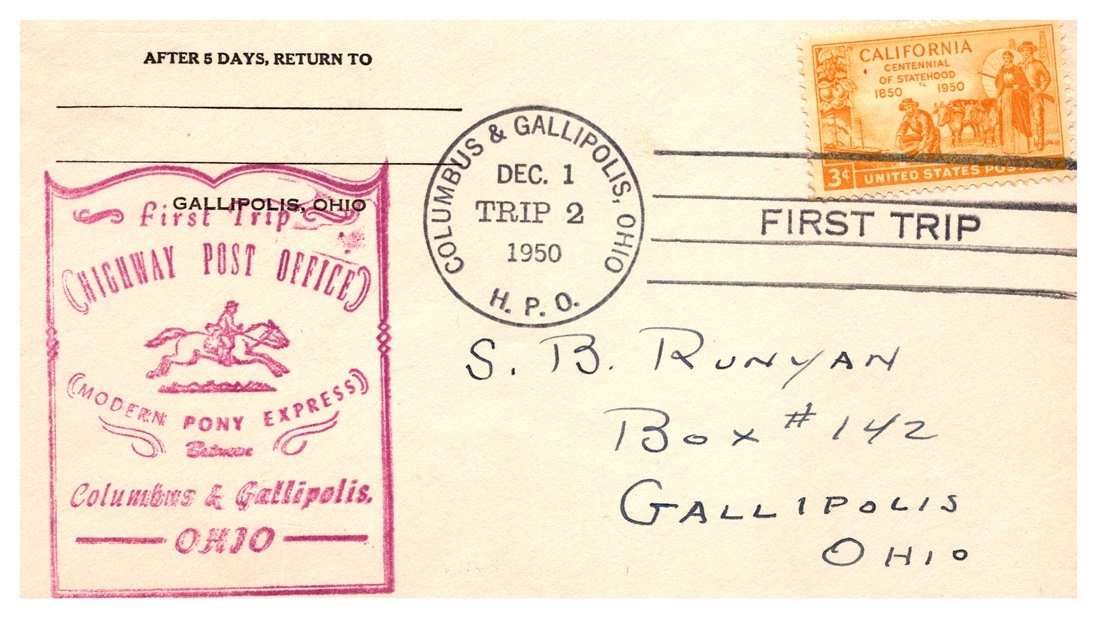 AFTER 5 DAYS, RETURN TO
GALLIPOLIS, OHIO
First Trip
HIGHWAY POST OFFICE
MODERN PONY EXPRESS
Between
Columbus & Gallipolis.
OHIO
COLUMBUS & GALLIPOLIS, OHIO
DEC. 1
TRIP 2
1950
H. P. O.
FIRST TRIP
CALIFORNIA
CENTENNIAL
OF STATEHOOD
1850 1950
3¢ UNITED STATES POST
S. B. RUNYAN
BOX # 142
GALLIPOLIS
OHIO